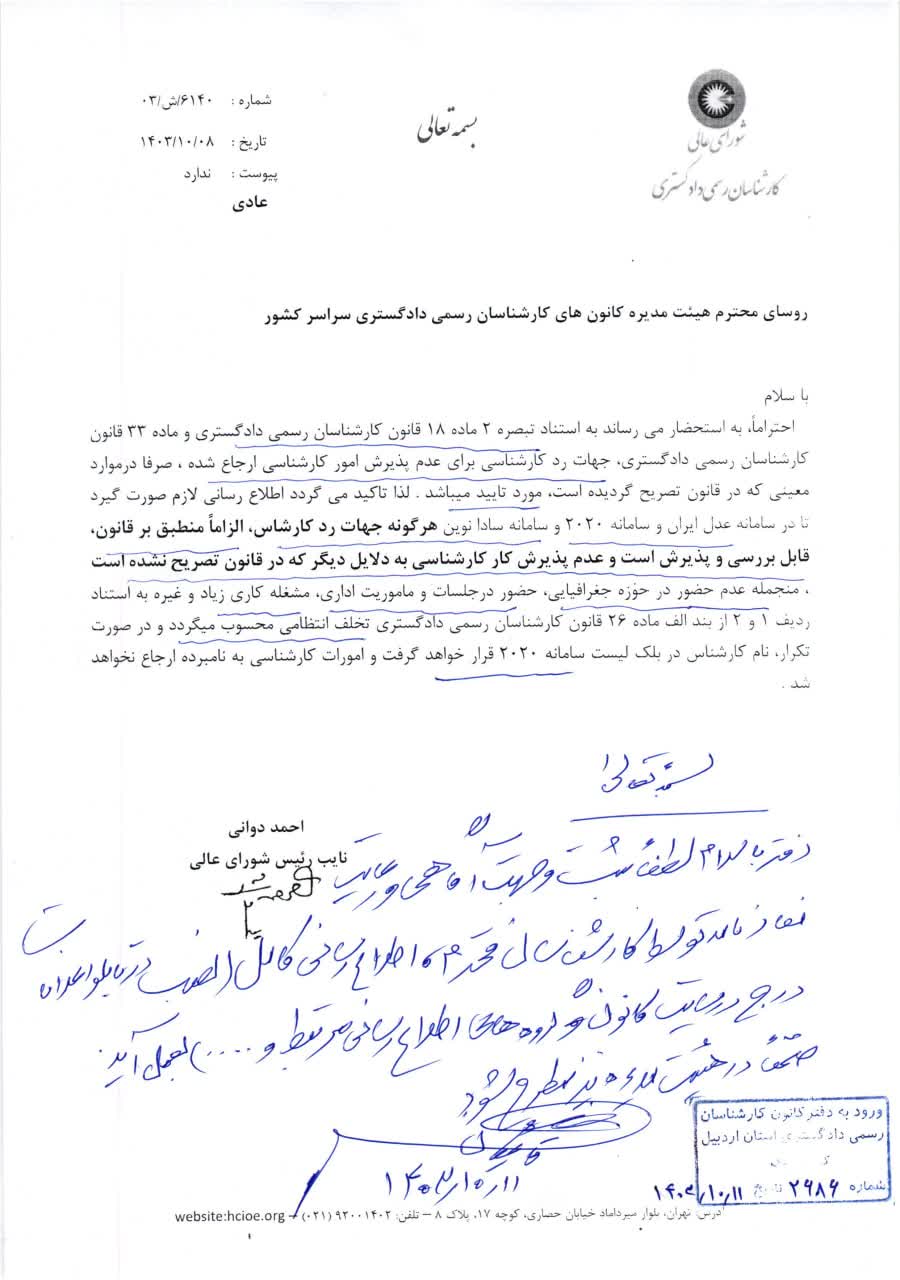 شورای عالی
کارشناسان رسمی دادگستری
بسمه تعالی
شماره : ۶۱۴۰/ش/۰۳
تاریخ : ۱۴۰۳/۱۰/۰۸
پیوست : ندارد
عادی
روسای محترم هیئت مدیره کانون های کارشناسان رسمی دادگستری سراسر کشور
با سلام
احتراماً، به استحضار می رساند به استناد تبصره ۲ ماده ۱۸ قانون کارشناسان رسمی دادگستری و ماده ۳۳ قانون
کارشناسان رسمی دادگستری، جهات رد کارشناسی برای عدم پذیرش امور کارشناسی ارجاع شده ، صرفا درموارد
معینی که در قانون تصریح گردیده است، مورد تایید میباشد . لذا تاکید می گردد اطلاع رسانی لازم صورت گیرد
تا در سامانه عدل ایران و سامانه ۲۰۲۰ و سامانه سادا نوین هرگونه جهات رد کارشاس، الزاماً منطبق بر قانون،
قابل بررسی و پذیرش است و عدم پذیرش کار کارشناسی به دلایل دیگر که در قانون تصریح نشده است
، منجمله عدم حضور در حوزه جغرافیایی، حضور درجلسات و ماموریت اداری، مشغله کاری زیاد و غیره به استناد
ردیف ۱ و ۲ از بند الف ماده ۲۶ قانون کارشناسان رسمی دادگستری تخلف انتظامی محسوب میگردد و در صورت
تکرار، نام کارشناس در بلک لیست سامانه ۲۰۲۰ قرار خواهد گرفت و امورات کارشناسی به نامبرده ارجاع نخواهد
شد .
احمد دوانی
نایب رئیس شورای عالی
بسمه تعالی
دفتر با سلام لطفاً ثبت و جهت آگاهی و رعایت
مفاد نامه توسط کارشناسان محترم اطلاع رسانی کامل (نصب در تابلو اعلانات
درج در سایت کانون و گروه های اطلاع رسانی مرتبط و ....) بعمل آید.
ضمناً در هیئت مدیره نیز مطرح شود
۱۴۰۳/۱۰/۱۱
ورود به دفتر کانون کارشناسان
رسمی دادگستری استان اردبیل
شماره ۲۹۸۶ تاریخ ۱۴۰۳/۱۰/۱۱
آدرس: تهران، بلوار میرداماد خیابان حصاری، کوچه ۱۷، پلاک ۸ – تلفن: ۹۲۰۰۱۴۰۲ (۰۲۱) – website:hcioe.org